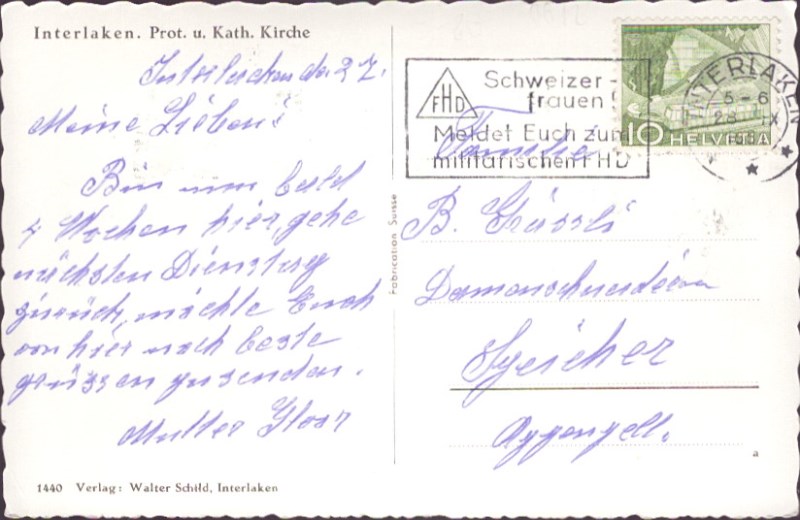 Interlaken. Prot. u. Kath. Kirche
Interlaken den 27.
Meine Lieben!
Bin nun bald
4 Wochen hier, gehe
nächsten Dienstag
zurück, möchte Euch
von hier noch beste
grüssen zusenden.
Mutter
1440 Verlag: Walter Schild, Interlaken
Fabrication Suisse
Schweizer-
frauen!
FHD
Meldet Euch zum
militärischen FHD
INTERLAKEN
5-6
28. IX
10 HELVETIA
Familie
B.
Damenschneiderin
Speicher
Appenzell.
a